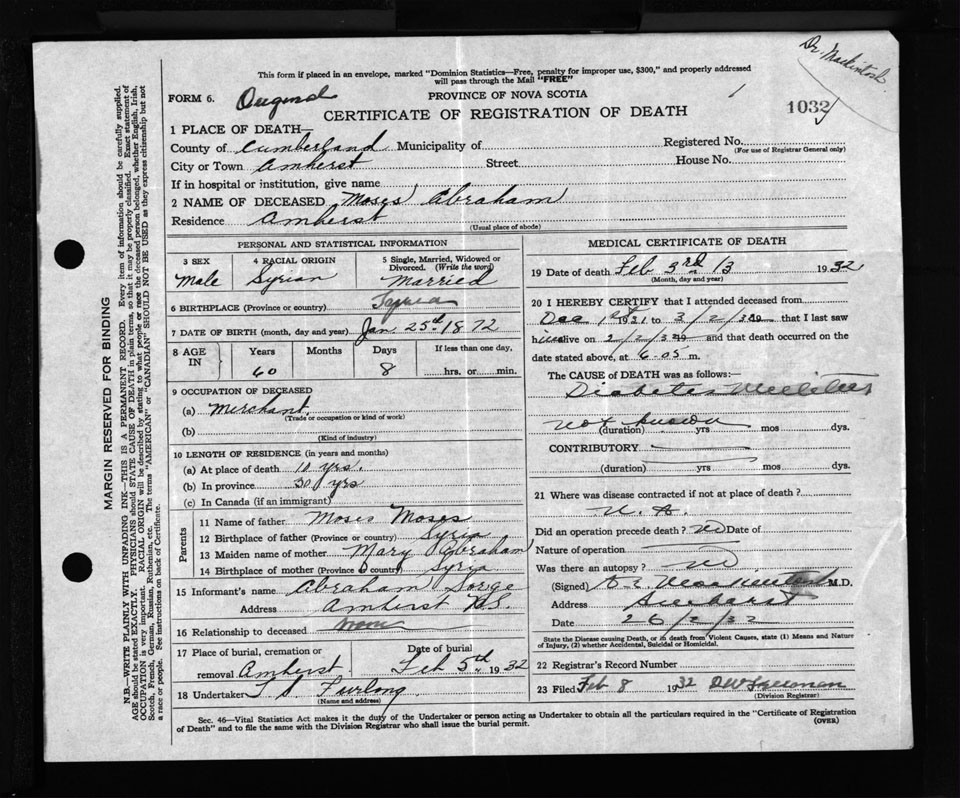 Dr. Mackintosh
This form if placed in an envelope, marked "Dominion Statistics—Free, penalty for improper use, $300," and properly addressed
will pass through the Mail "FREE"
FORM 6. Original PROVINCE OF NOVA SCOTIA 1
CERTIFICATE OF REGISTRATION OF DEATH 1032
1 PLACE OF DEATH—
County of Cumberland Municipality of Registered No.
(For use of Registrar General only)
City or Town Amherst Street House No.
If in hospital or institution, give name
2 NAME OF DECEASED Moses Abraham
Residence Amherst
(Usual place of abode)
PERSONAL AND STATISTICAL INFORMATION
3 SEX 4 RACIAL ORIGIN 5 Single, Married, Widowed or
Divorced. (Write the word)
Male Syrian Married
6 BIRTHPLACE (Province or country)
7 DATE OF BIRTH (month, day and year) Jan 25th 1872
8 AGE IN Years Months Days If less than one day,
60 8 hrs. or min.
9 OCCUPATION OF DECEASED
(a) Merchant
(Trade or occupation or kind of work)
(b)
(Kind of industry)
10 LENGTH OF RESIDENCE (in years and months)
(a) At place of death 10 yrs.
(b) In province 30 yrs
(c) In Canada (if an immigrant)
Parents
11 Name of father Moses Moses
12 Birthplace of father (Province or country) Syria
13 Maiden name of mother Mary Abraham
14 Birthplace of mother (Province or country) Syria
15 Informant's name Abraham Sorge
Address Amherst N.S.
16 Relationship to deceased none
17 Place of burial, cremation or Date of burial
removal Amherst. Feb 5th 1932
18 Undertaker Furlong
(Name and address)
MEDICAL CERTIFICATE OF DEATH
19 Date of death Feb 3rd 13 1932
(Month, day and year)
20 I HEREBY CERTIFY that I attended deceased from
Dec 1st 1931 to 3/2/32 that I last saw
him alive on 2/2/32 and that death occurred on the
date stated above, at 6.05 m.
The CAUSE of DEATH was as follows:—
Diabetes Mellitus
not known
(duration) yrs mos dys.
CONTRIBUTORY
(duration) yrs mos dys.
21 Where was disease contracted if not at place of death?
Did an operation precede death? no Date of
Nature of operation
Was there an autopsy? no
(Signed) M.D.
Address Amherst
Date 26/2/32
State the Disease causing Death, or in death from Violent Causes, state (1) Means and Nature
of Injury, (2) whether Accidental, Suicidal or Homicidal.
22 Registrar's Record Number
23 Filed Feb 8 1932
(Division Registrar)
Sec. 46—Vital Statistics Act makes it the duty of the Undertaker or person acting as Undertaker to obtain all the particulars required in the "Certificate of Registration
of Death" and to file the same with the Division Registrar who shall issue the burial permit. (OVER)
MARGIN RESERVED FOR BINDING
N.B.—WRITE PLAINLY WITH UNFADING INK—THIS IS A PERMANENT RECORD. Every item of information should be carefully supplied.
AGE should be stated EXACTLY. PHYSICIANS should STATE CAUSE OF DEATH in plain terms, so that it may be properly classified. Exact statement of
OCCUPATION is very important. RACIAL ORIGIN will be described by stating to what people or race the deceased person belonged, whether English, Irish,
Scotch, French, German, Russian, Ruthenian, etc. The terms "AMERICAN" or "CANADIAN" SHOULD NOT BE USED as they express citizenship but not
a race or people. See instructions on back of Certificate.